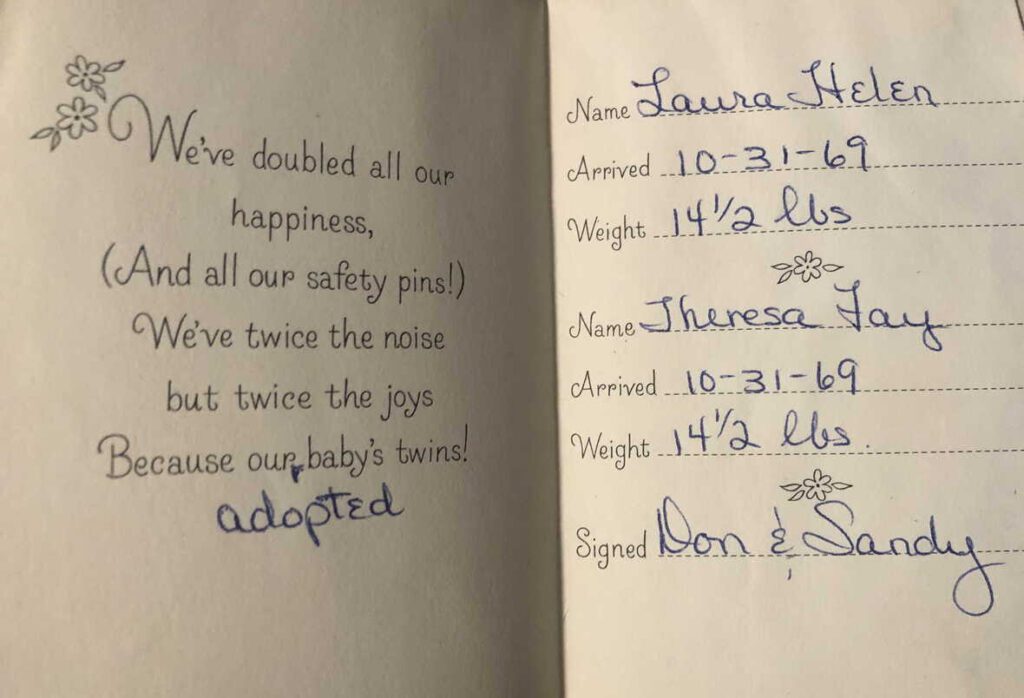 We've doubled all our
happiness,
(And all our safety pins!)
We've twice the noise
but twice the joys
Because our baby's twins!
adopted
Name Laura Helen
Arrived 10-31-69
Weight 14 1/2 lbs
Name Theresa Fay
Arrived 10-31-69
Weight 14 1/2 lbs.
Signed Don & Sandy